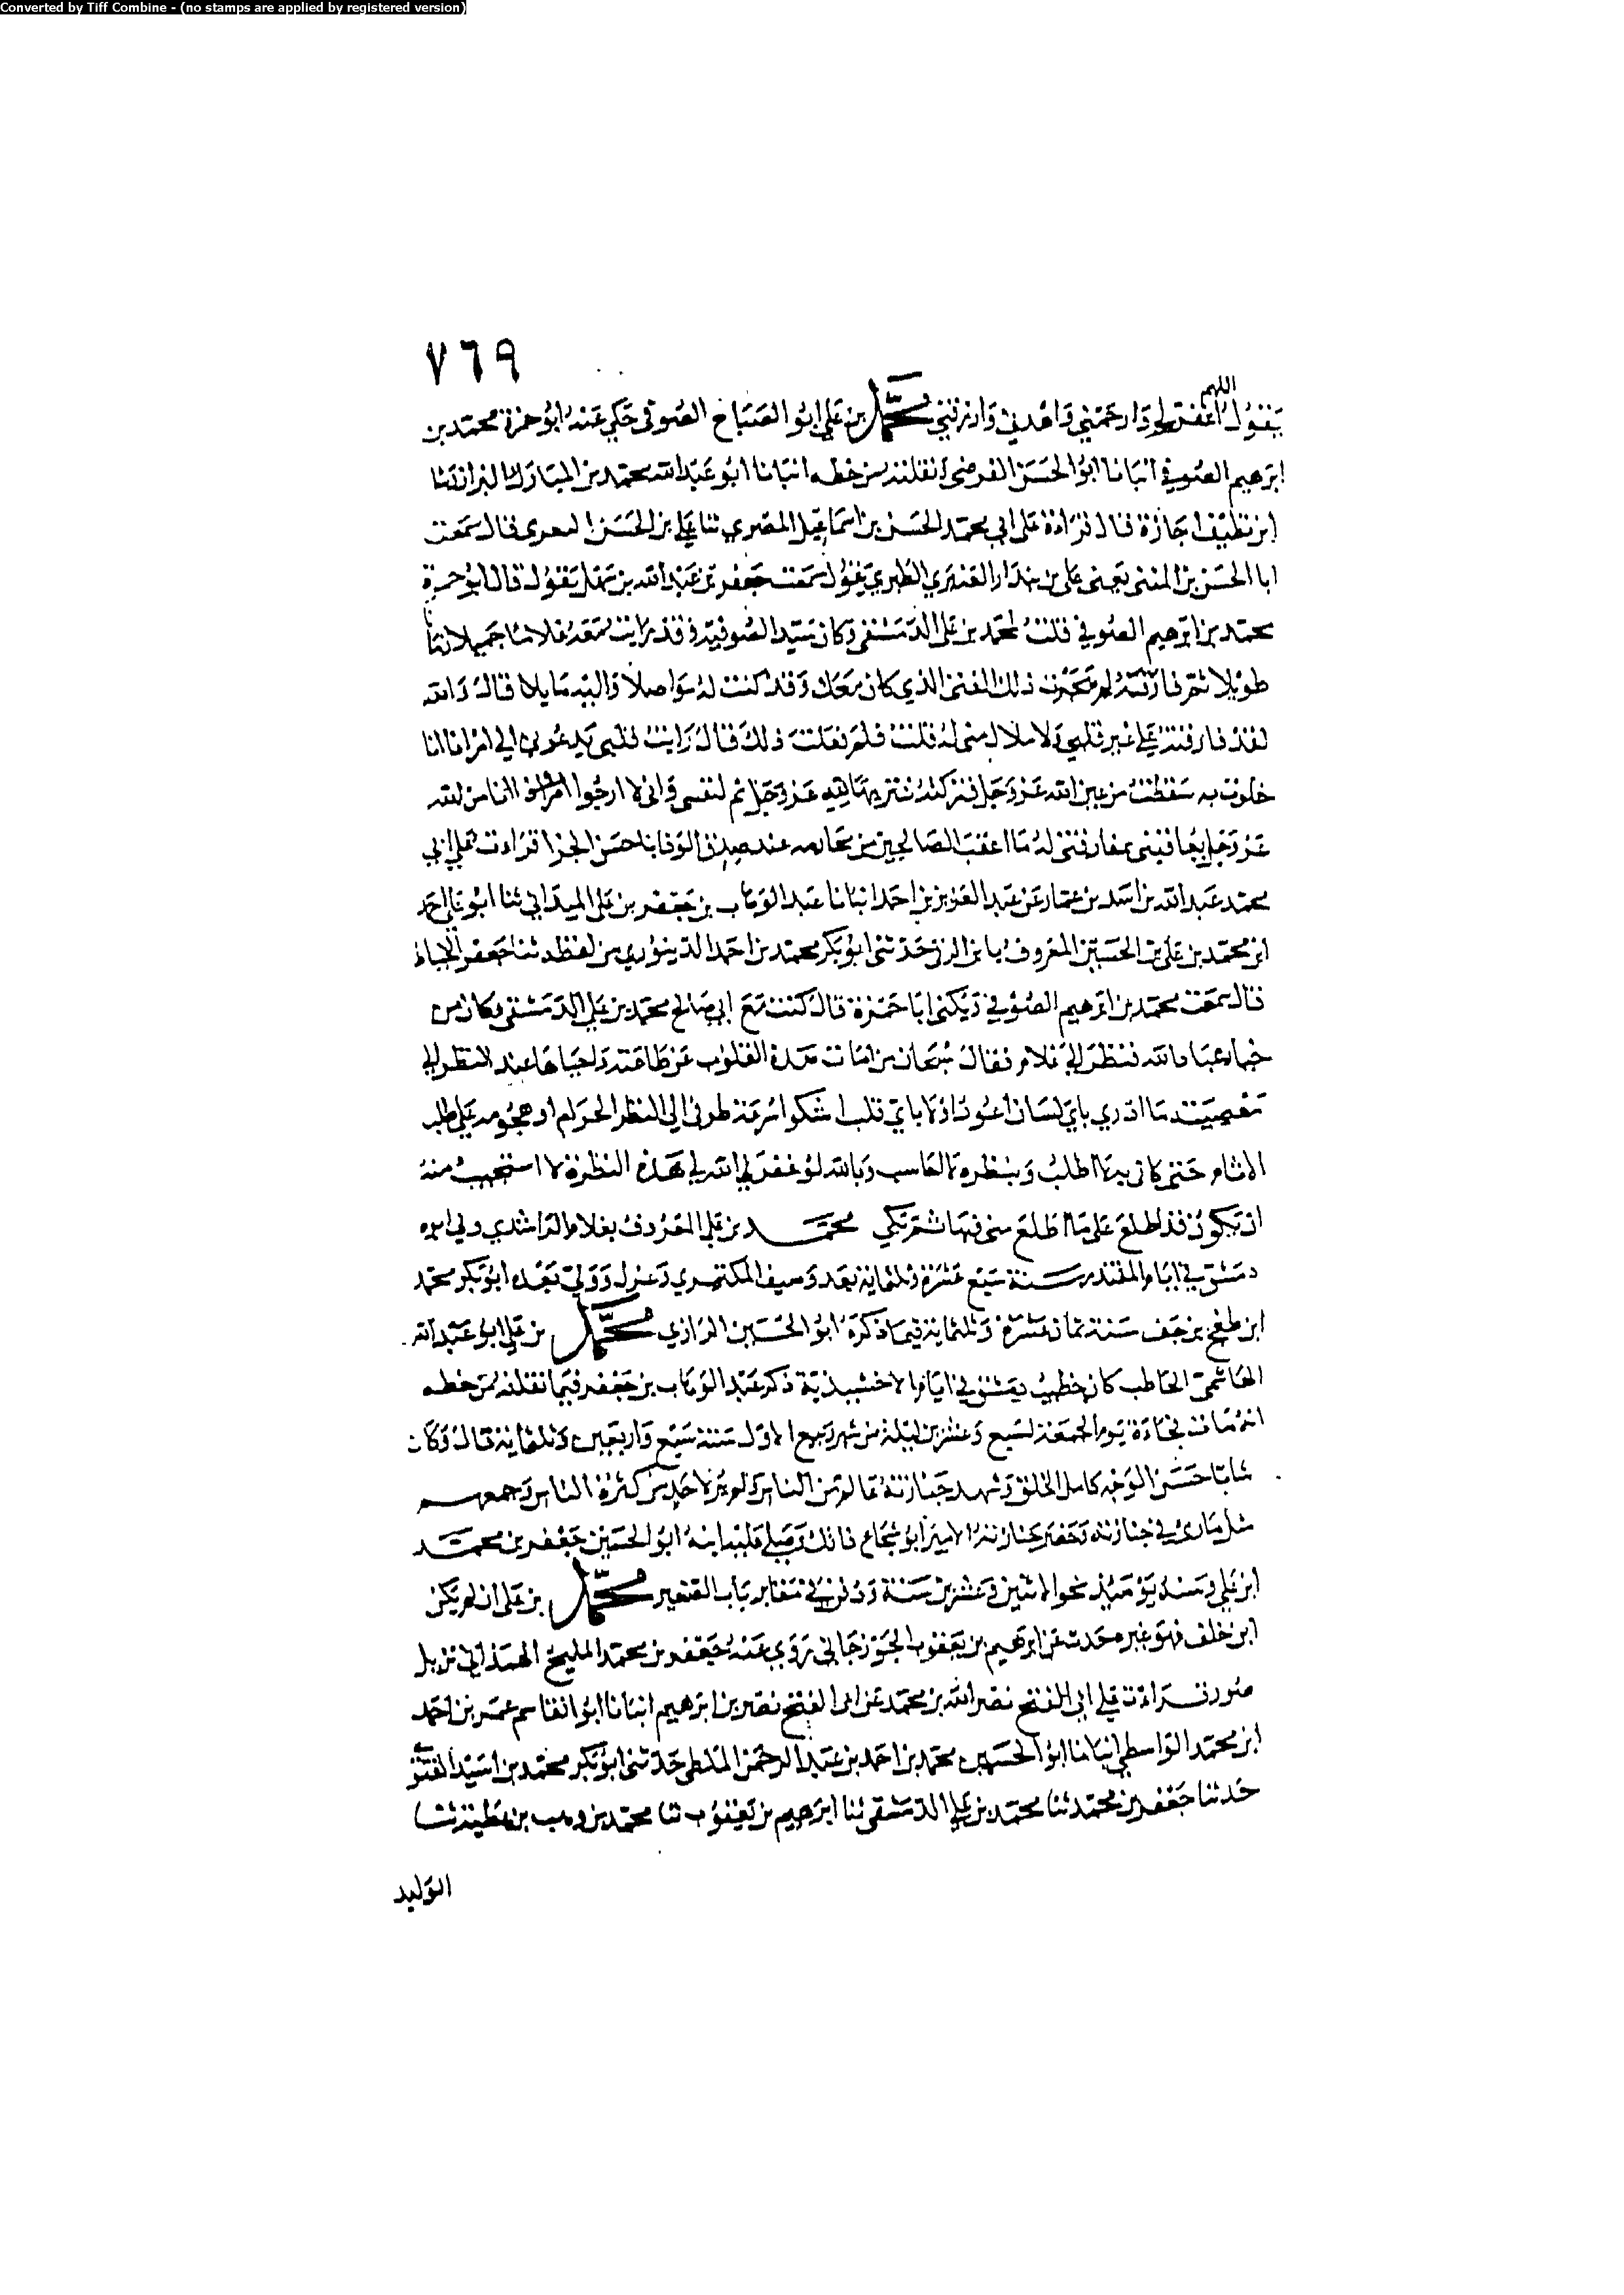 Converted by Tiff Combine - (no stamps are applied by registered version)
٧٦٩
اللهم
يقول اغفر لي وارحمني واهدني وارزقني محمد بن علي ابو الصباح الصوفي حكى عنه ابو حمزة محمد بن
ابرهيم الصوفي انبانا ابو الحسن الفرضي ونقلته من خطه انبانا ابو عبد الله محمد بن المبارك البزار انبانا
ابن نظيف اجازة قال قراءة على ابي محمد الحسن بن اسماعيل المصري ثنا علي بن الحسن المعري قال سمعت
ابا الحسن بن المثنى يعني علي بن بندار القشيري الطبري يقول سمعت جعفر بن عبد الله بن سهل يقول قال ابو حمزة
محمد بن ابرهيم الصوفي قلت لمحمد بن علي الدمشقي وكان سيد الصوفية وقد رايت معه غلاما جميلا زمانا
طويلا ثم فارقته لم هجرت ذلك الفتى الذي كان معك وقد كنت له مواصلا واليه مايلا قال والله
لقد فارقته على غير قلى ولا ملال مني له قلت فلم فعلت ذلك قال رايت قلبي يدعوني الى امر اذا انا
خلوت به سقطت من عين الله عز وجل فتركته تنزيها لله عز وجل ثم لنفسي واني لا ارجوا الله
عز وجل يعافيني بمفارقتي له ما اعقب الصالحين من محارمه عند صدق الوفا باحسن الجزا قراءت على ابي
محمد عبد الله بن اسد بن عمار عن عبد العزيز بن احمد انبانا عبد الوهاب بن جعفر بن علي الميداني ثنا ابو علي احمد
ابن محمد بن علي بن الحسين المعروف بابن الزف حدثني ابو بكر محمد بن احمد الدينوري من لفظه ثنا جعفر الخياط
قال سمعت محمد بن ابرهيم الصوفي ويكنى ابا حمزة قال كنت مع ابي صالح محمد بن علي الدمشقي وكان من
خيار عباد الله فنظر الى غلام فقال سبحان من امات هذه القلوب عن طاعته واحياها عند النظر الى
معصيته ما ادري باي لسان ادعوه اولا باي قلب اشكوا سرعة طرفي الى النظر الحرام او هجومه على طلب
الاثام حتى كاني بها اطلب وبنظره لها سب وبالله لو غفر لي الله لي هذه النظرة لاستحييت منه
ان يكون قد اطلع على ما اطلع مني فيها ثم بكى محمد بن علي المعروف بغلام الراشدي ولي امره
دمشق في ايام المقتدر سنة سبع عشرة وثلثماية بعد وصيف البكتمري وعزل وولي بعده ابو بكر محمد
ابن طغج بن جف سنة ثمان عشرة وثلثماية فيما ذكره ابو الحسين الرازي محمد بن علي ابو عبد الله
الهاشمي الخاطب كان خطيب دمشق في ايام الاخشيذية ذكر عبد الوهاب بن جعفر فيما نقلته من خطه
انه مات فجاءة يوم الجمعة لسبع وعشرين ليلة من شهر ربيع الاول سنة سبع واربعين وثلثماية قال وكان
شابا حسن الوجه كامل الخلق وشهد جنازته عالم من الناس ولم ير لاحد من كثرة الناس وجمعهم
مثل ما راى في جنازته وحضر جنازته الامير ابو شجاع فاتك وصلى عليه ابنه ابو الحسين جعفر بن محمد
ابن علي وسنه يومئذ نحو الاثنين وعشرين سنة ودفن في مقابر باب الصغير محمد بن علي ان لم يكن
ابن خلف فهو غيره حدث عن ابرهيم بن يعقوب الجوزجاني روى عنه جعفر بن محمد المليح الهمذاني نزيل
صور قراءت على ابي الفتح نصر الله بن محمد عن ابي الفتح نصر بن ابرهيم انبانا ابو القاسم عمر بن احمد
ابن محمد الواسطي انبانا ابو الحسين محمد بن احمد بن عبد الرحمن الملطي حدثني ابو بكر محمد بن اسيد
حدثنا جعفر بن محمد ثنا محمد بن علي الدمشقي ثنا ابرهيم بن يعقوب ثنا محمد بن وهب بن عطية ثنا
الوليد